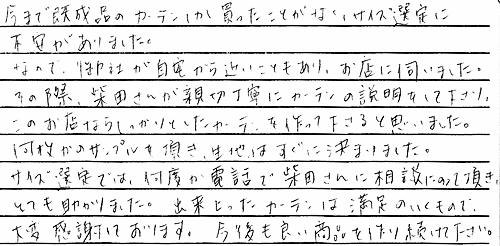 今まで既成品のカーテンしか買ったことがなく、サイズ選定に
不安がありました。
なので、御社が自宅から近いこともあり、お店に伺いました。
その際、柴田さんが親切丁寧にカーテンの説明をして下さり、
このお店ならしっかりとしたカーテンを作って下さると思いました。
何枚かのサンプルを頂き、生地はすぐに決まりました。
サイズ選定では、何度か電話で柴田さんに相談にのって頂き、
とても助かりました。出来上ったカーテンは満足のいくもので、
大変感謝しております。今後も良い商品を作り続けて下さい。